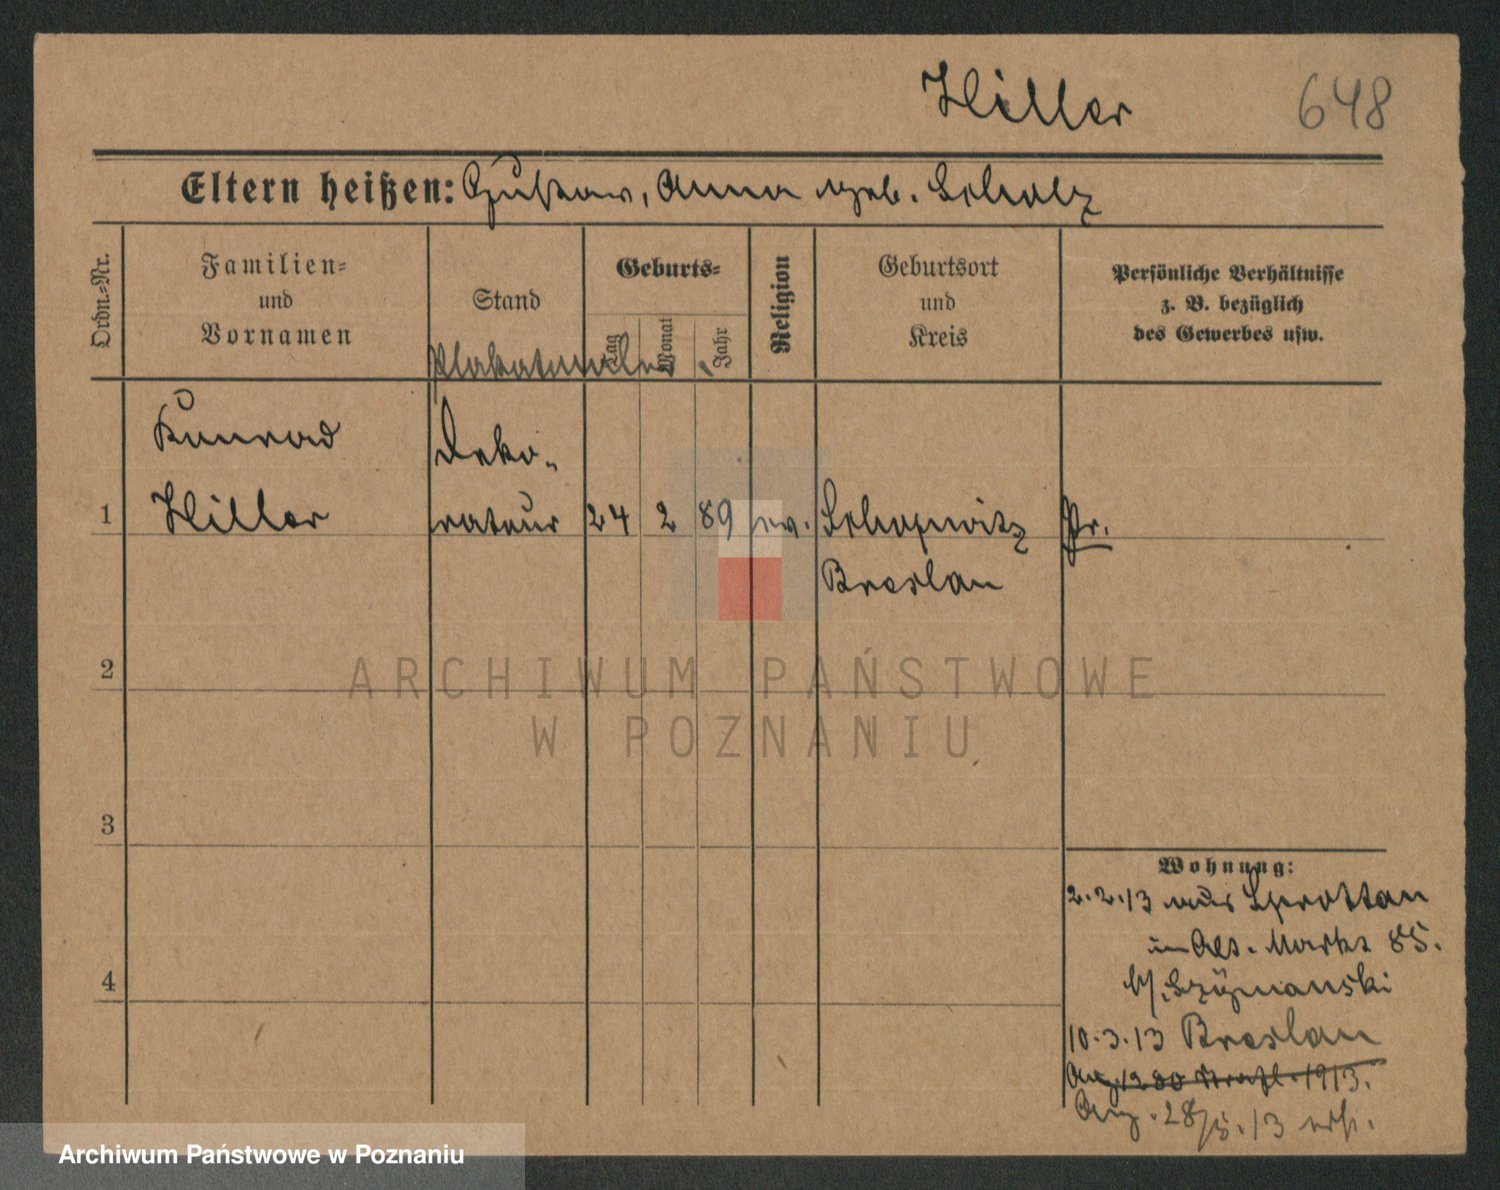 Hiller 648
Eltern heißen: Gustav, Anna geb. Scholz
Ordn.-Nr.
Familien-
und
Vornamen
Stand
Geburts-
Tag
Monat
Jahr
Religion
Geburtsort
und
Kreis
Persönliche Verhältnisse
z. B. bezüglich
des Gewerbes usw.
Plakatmaler
Konrad Deko-
1 Hiller rateur 24 2 89 ev. Pr.
Breslau
2
ARCHIWUM PAŃSTWOWE
W POZNANIU
3
Wohnung:
2.2.13 aus Sprottau
Markt 85.
b/. Szÿmanski
4
10.3.13 Breslau
1913.
28/5.13
Archiwum Państwowe w Poznaniu